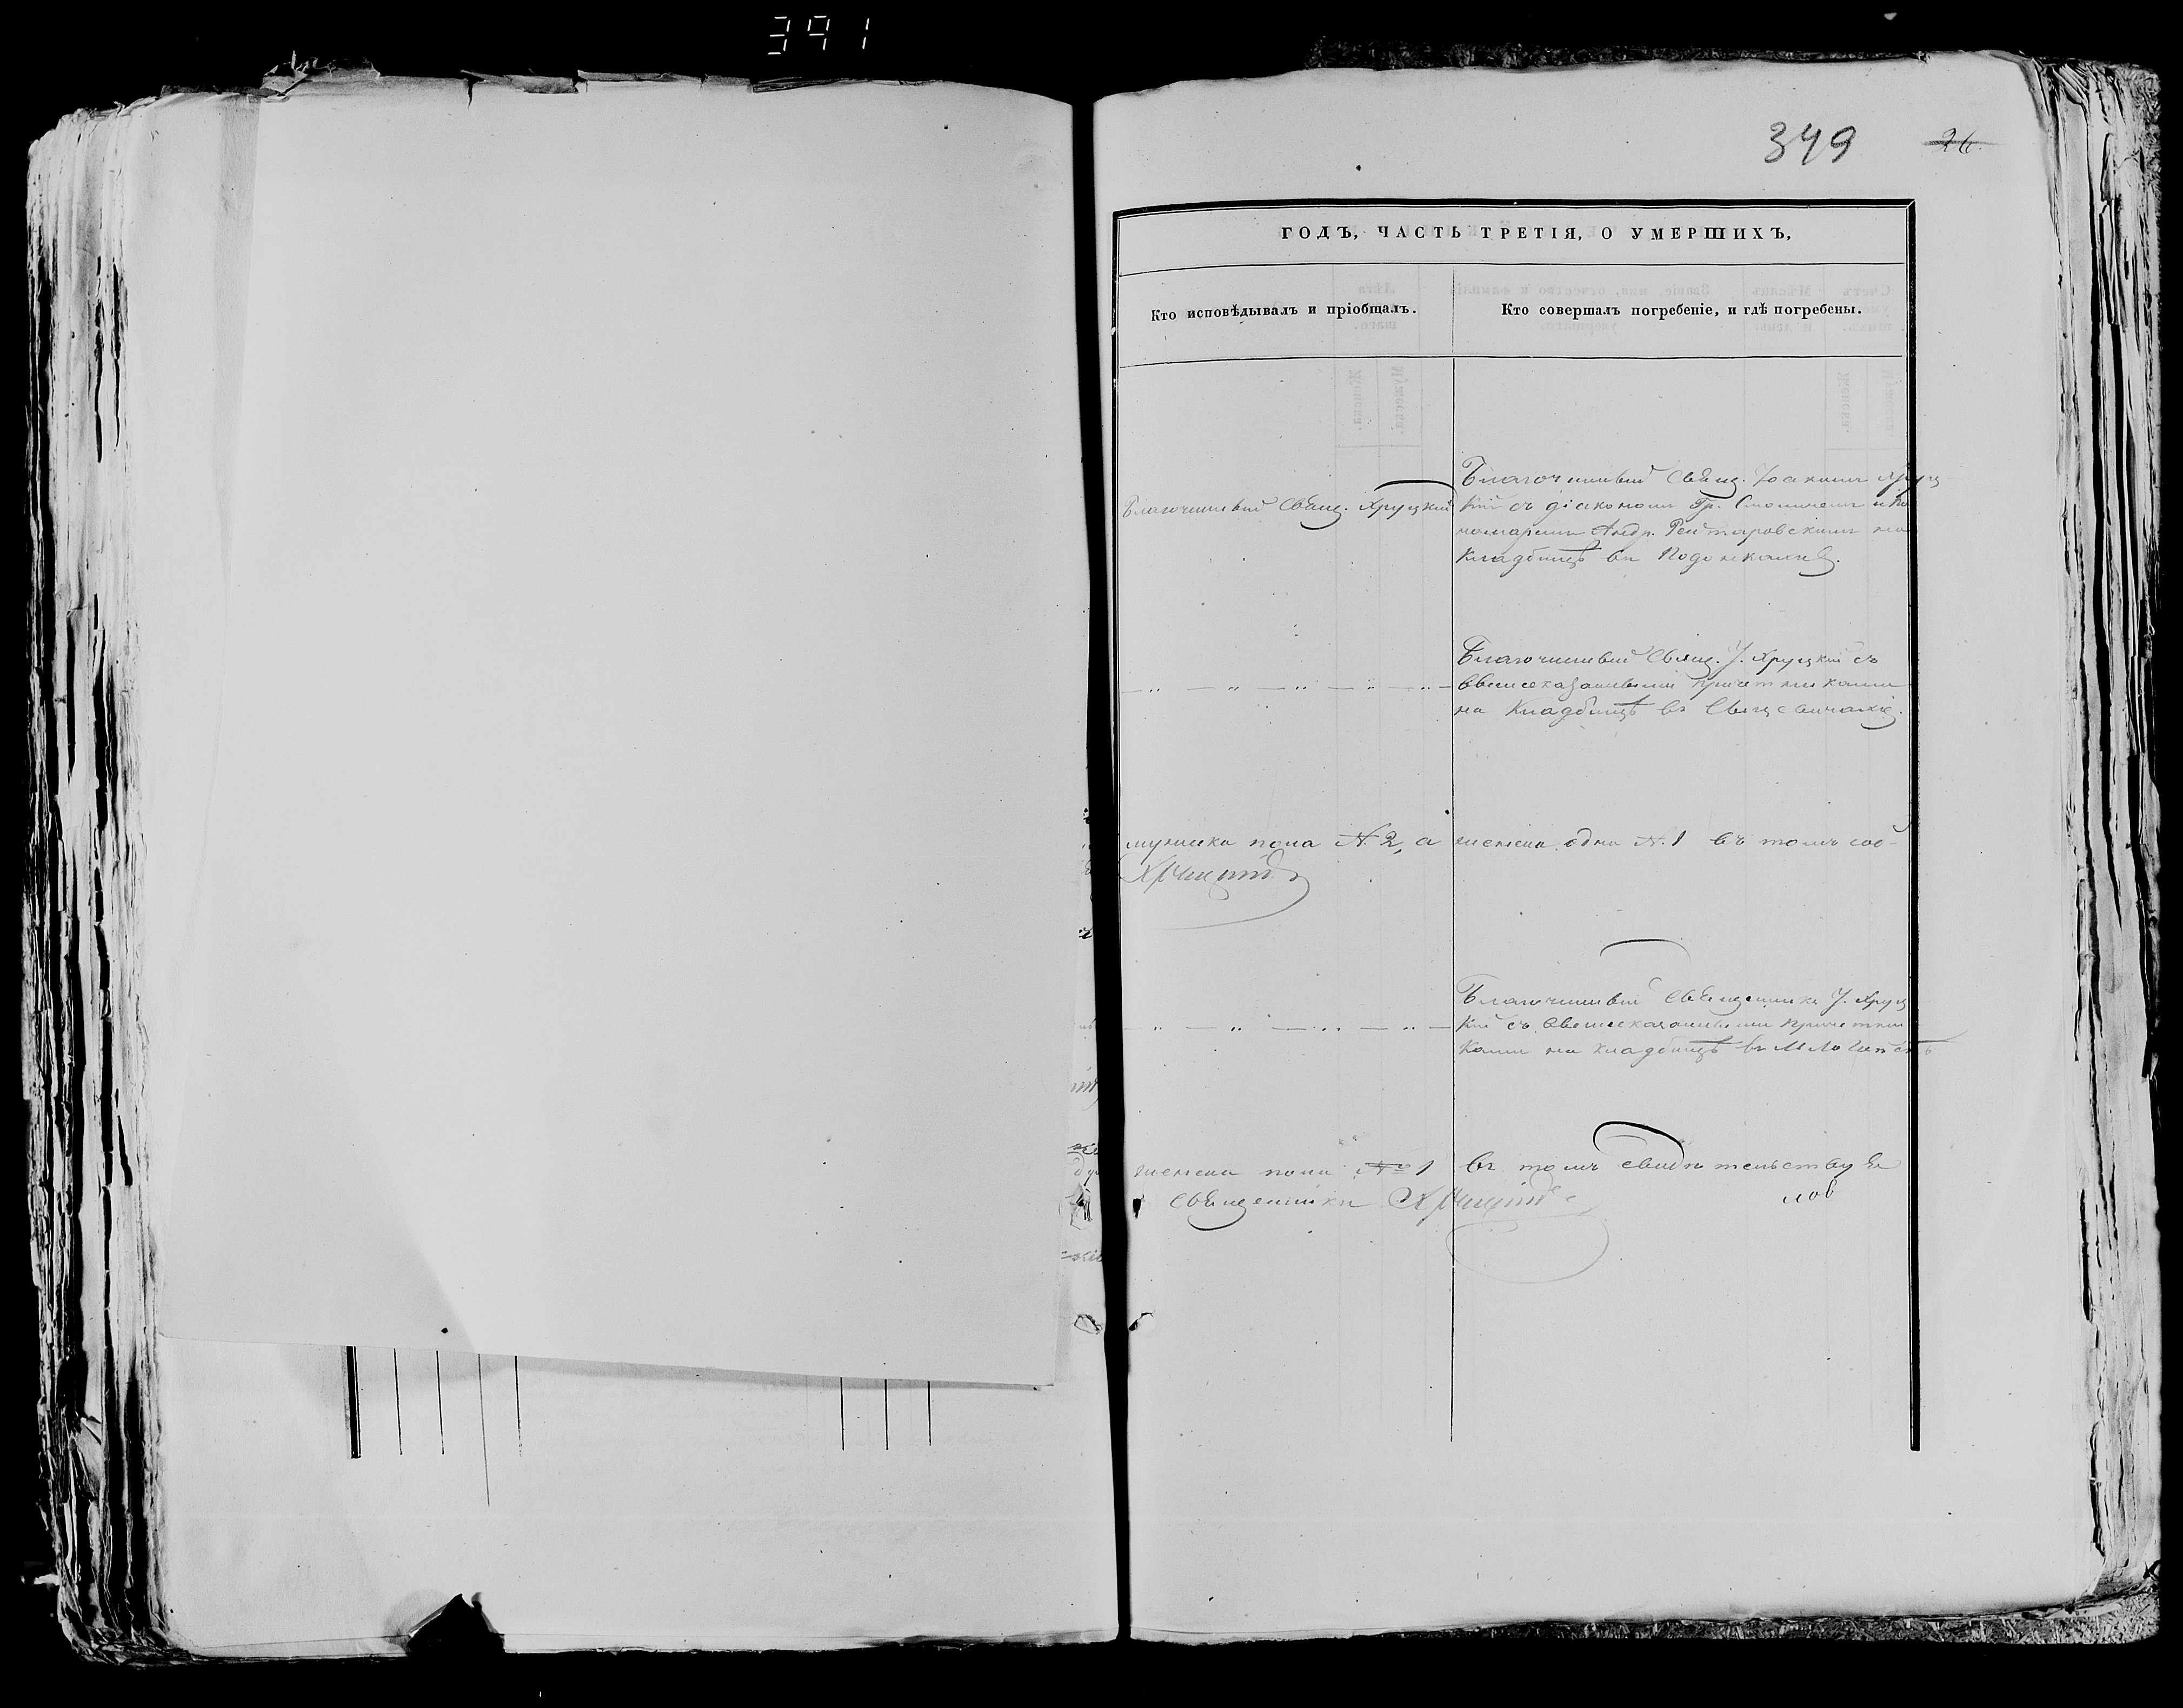 391
349 26.
ГОДЪ, ЧАСТЬ ТРЕТІЯ, О УМЕРШИХЪ,
Кто исповѣдывалъ и пріобщалъ.
Кто совершалъ погребеніе, и гдѣ погребены.
Благочинный Свящ. Хруцкий
Благочинный Свящ. Іоакимъ Хруц
кий съ діакономъ Гр. и По
номаремъ Андр. Рейтаровскимъ на
Кладбищѣ въ
Благочинный Свящ. І. Хруцкий съ
Вышесказанными причетниками
на Кладбищѣ въ
мужеска пола № 2, а женска одна № 1 въ томъ
Благочинный Священникъ І. Хруц
кий съ Вышесказанными причетни
ками на кладбищѣ въ
женска пола № 1 въ томъ свидѣтельствуя
Священникъ